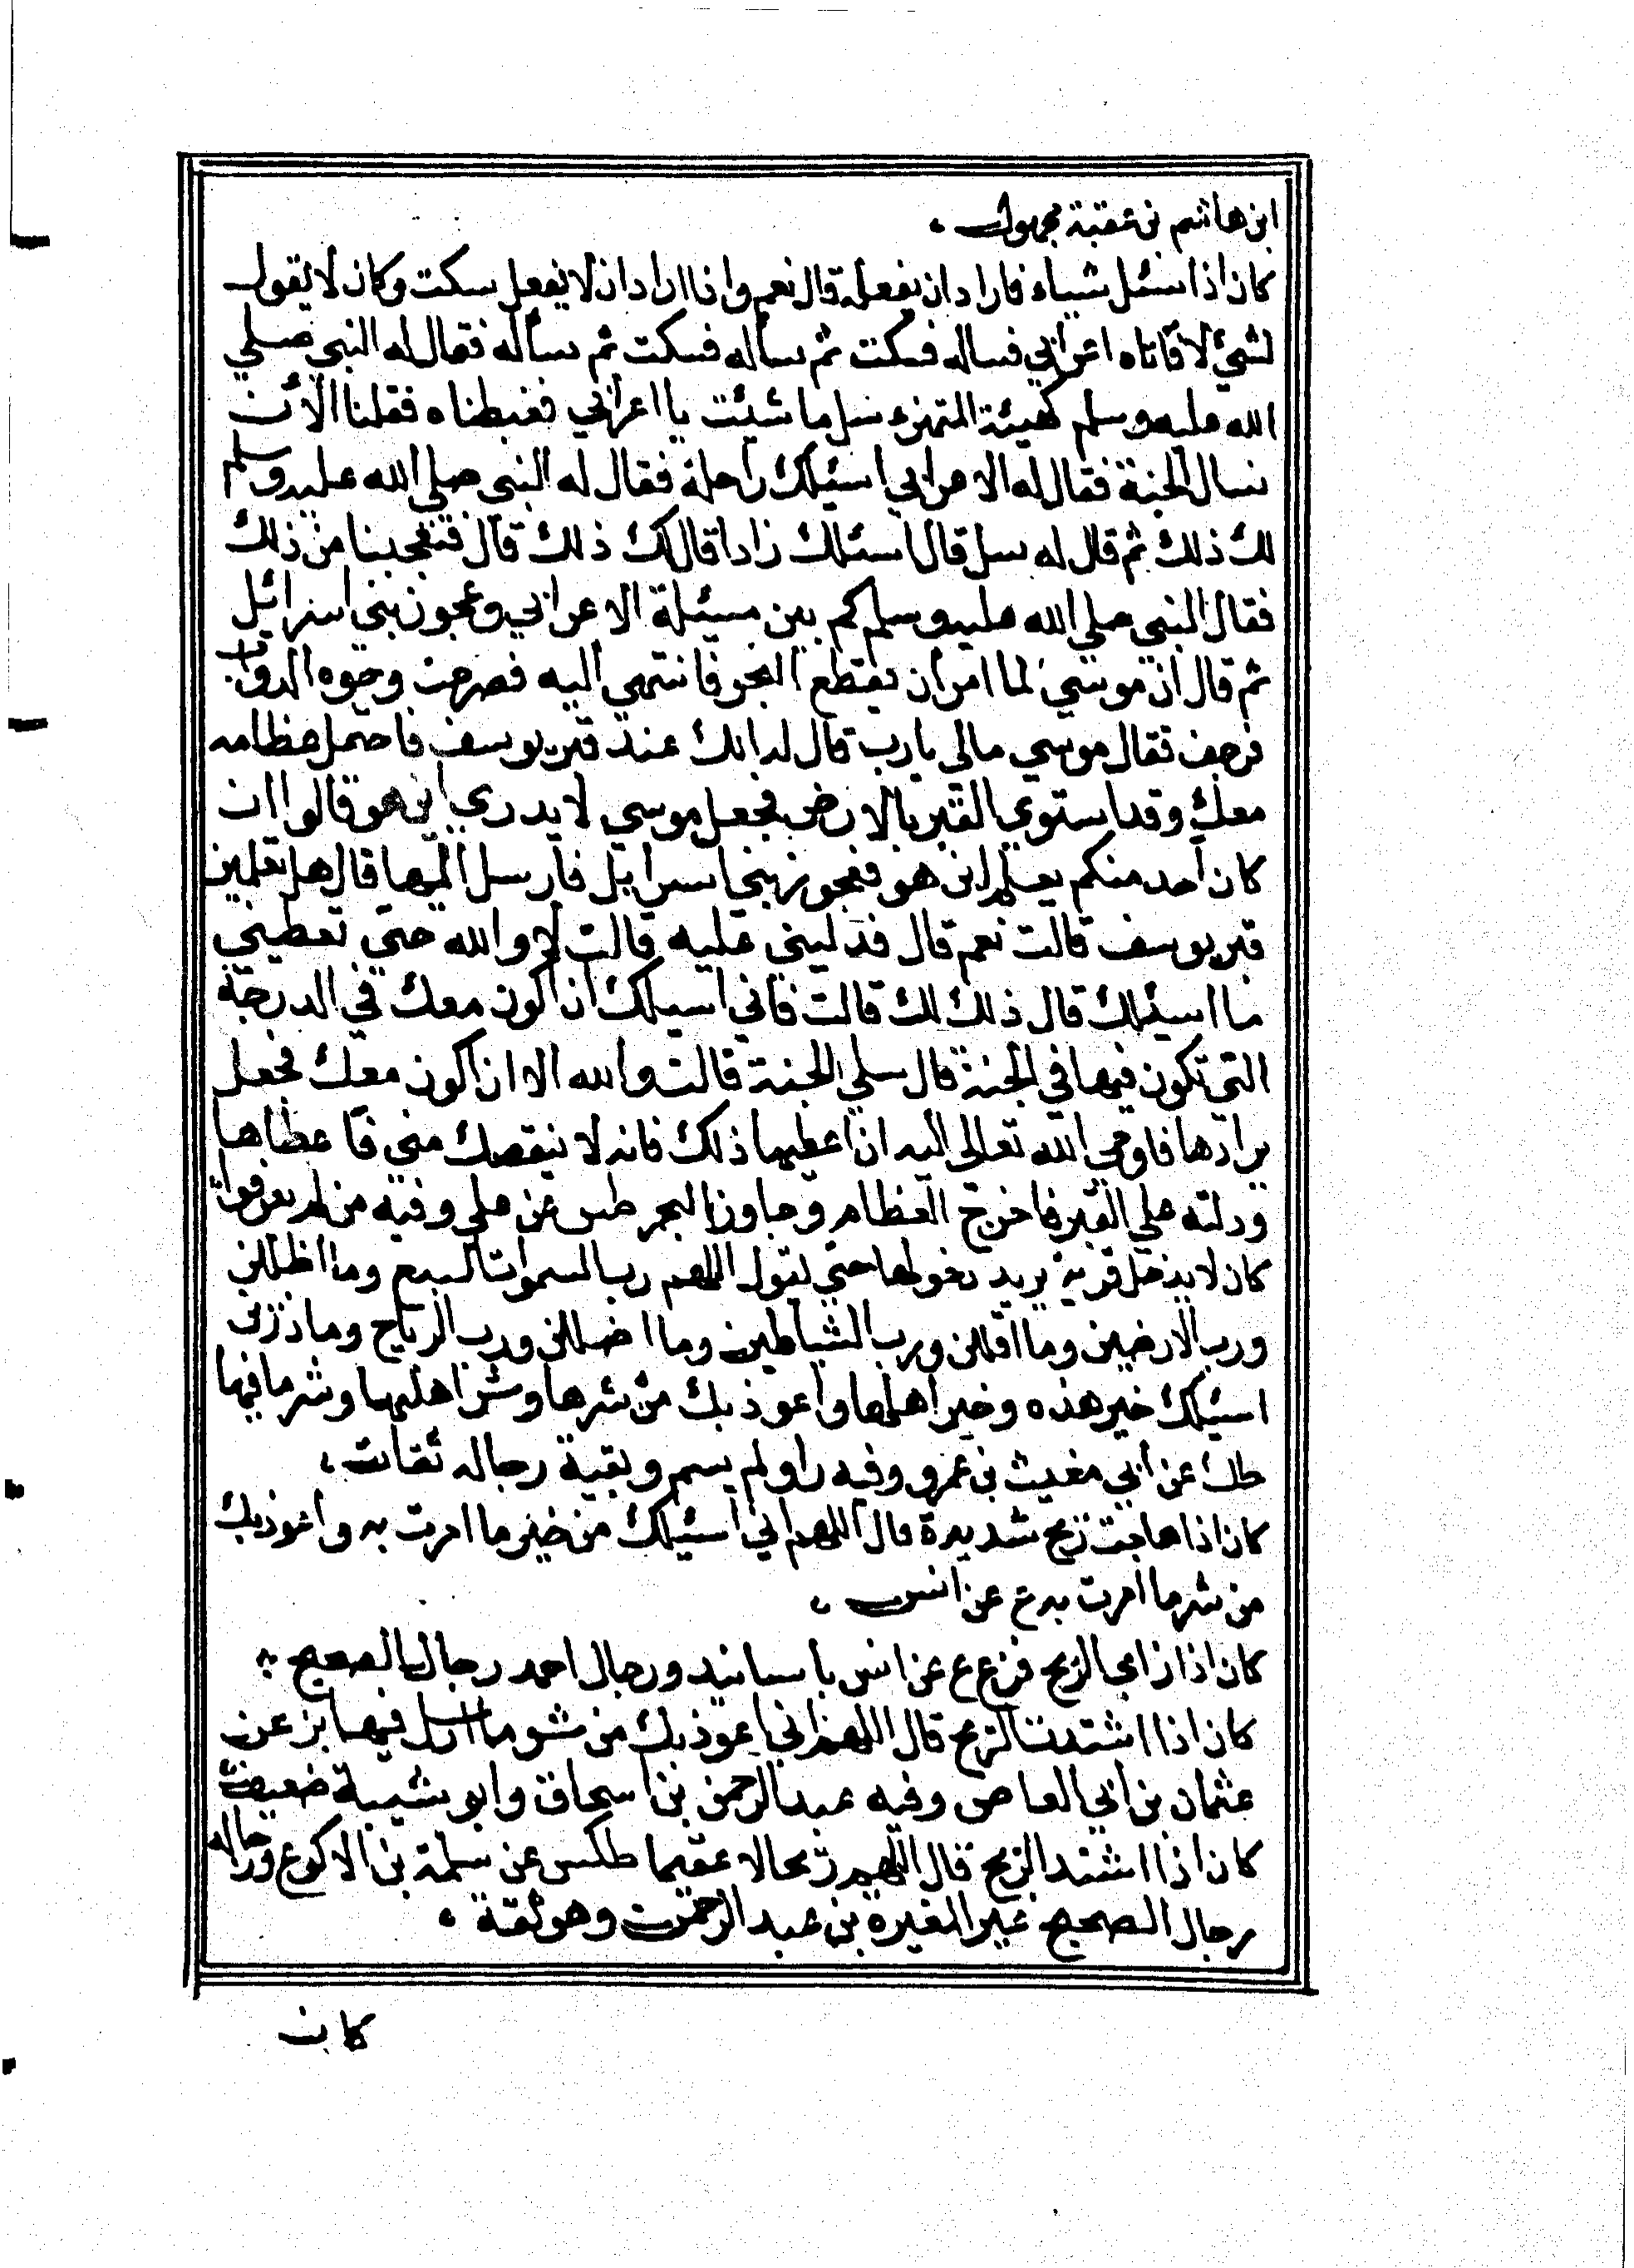 ابن هاشم بن عقبة مجهول
كان اذا سئل شياء فاراد ان يفعله قال نعم واذا اراد ان لا يفعل سكت وكان لا يقول
لشيئ لا فاتاه اعرابي فساله فسكت ثم سأله فسكت ثم سأله فقال له النبي صلي
الله عليه وسلم كهيئة المتهزء سل ما شئت يا اعرابي فغبطناه فقلنا الآن
نسال الجنة فقال له الاعرابي اسئلك راحلة فقال له النبي صلي الله عليه وسلم
لك ذلك ثم قال له سل قال اسئلك زادا قال لك ذلك قال فتعجبنا من ذلك
فقال النبي صلي الله عليه وسلم كم بين مسيلة الاعرابي وعجوز بني اسرائيل
ثم قال ان موسي لما امر ان يقطع البحر فانتهي اليه فصرحت وجوه الدواب
فرجعت فقال موسي مالي يا رب قال له انك عند قبر يوسف فاحتمل عظامه
معك وقد استوي القبر بالارض فجعل موسي لا يدري اين هو قالوا ان
كان احد منكم يعلم اين هو فعجوز بني اسرايل فارسل اليها قال هل تعلمين
قبر يوسف قالت نعم قال فدليني عليه قالت لا والله حتي تعطيني
ما اسئلك قال ذلك لك قالت فاني اسيلك ان اكون معك في الدرجة
التي تكون فيها في الجنة قال سلي الجنة قالت والله الا ان اكون معك فجعل
يرادها فاوحي الله تعالي اليه ان اعطيها ذلك فانه لا ينقصك مني فاعطاها
ودلته علي القبر فاخرج العظام وجاوز البحر طس عن علي وفيه من لم يعرفوا
كان لا يدخل قرية يريد دخولها حتي يقول اللهم رب السموات السبع وما اظللن
ورب الارضين وما اقللن ورب الشياطين وما اضللن ورب الرياح وما ذرين
اسئلك خير هذه وخير اهلها واعوذ بك من شرها وشر اهلها وشر ما فيها
طك عن ابي مغيث بن عمرو وفيه راو لم يسم وبقية رجاله ثقات
كان اذا هاجت ريح شديدة قال اللهم اني اسئيلك من خير ما امرت به واعوذ بك
من شر ما امرت به ع عن انس
كان اذا رامي الريح فزع ع عن انس باسانيد ورجال احمد رجال الصحيح
كان اذا اشتدت الريح قال اللهم اني اعوذ بك من شر ما ارسل فيها بز عن
عثمان بن ابي العاص وفيه عبد الرحمن بن اسحاق وابو شيبة ضعيف
كان اذا اشتد الريح قال اللهم لقحا لا عقيما طكس عن سلمة بن الاكوع ورجاله
رجال الصحيح غير المغيره بن عبد الرحمن وهو ثقة
كان